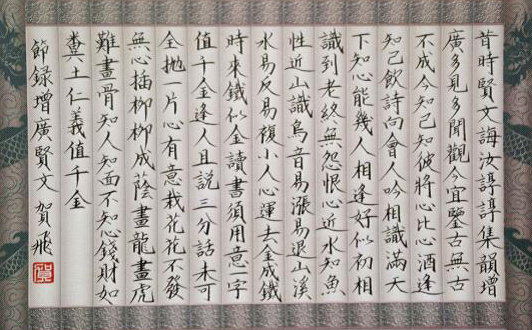 昔時賢文誨汝諄諄集韻增
廣多見多聞觀今宜鑒古無古
不成今知己知彼將心比心酒逢
知己飲詩向會人吟相識滿天
下知心能幾人相逢好似初相
識到老終無怨恨心近水知魚
性近山識鳥音易漲易退山溪
水易反易複小人心運去金成鐵
時來鐵似金讀書須用意一字
值千金逢人且説三分話未可
全拋一片心有意栽花花不發
無心插柳柳成蔭畫龍畫虎
難畫骨知人知面不知心錢財如
糞土仁義值千金
節録增廣賢文 賀飛